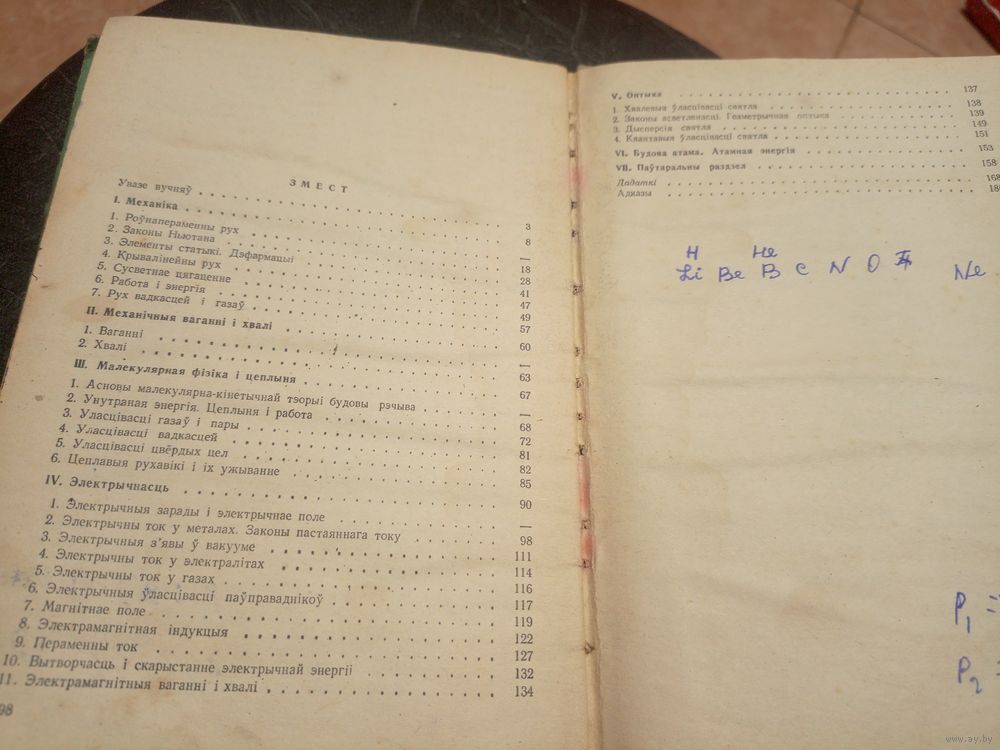 ЗМЕСТ
Увазе вучняў . . . 3
I. Механіка . . . 8
1. Роўнапераменны рух . . . —
2. Законы Ньютана . . . 18
3. Элементы статыкі. Дэфармацыі . . . 28
4. Крывалінейны рух . . . 41
5. Сусветнае цягаценне . . . 47
6. Работа і энергія . . . 49
7. Рух вадкасцей і газаў . . . 57
II. Механічныя ваганні і хвалі . . . 60
1. Ваганні . . . —
2. Хвалі . . . 63
III. Малекулярная фізіка і цеплыня . . . 67
1. Асновы малекулярна-кінетычнай тэорыі будовы рэчыва . . . —
2. Унутраная энергія. Цеплыня і работа . . . 68
3. Уласцівасці газаў і пары . . . 72
4. Уласцівасці вадкасцей . . . 81
5. Уласцівасці цвёрдых цел . . . 82
6. Цеплавыя рухавікі і іх ужыванне . . . 85
IV. Электрычнасць . . . 90
1. Электрычныя зарады і электрычнае поле . . . —
2. Электрычны ток у металах. Законы пастаяннага току . . . 98
3. Электрычныя з'явы ў вакууме . . . 111
4. Электрычны ток у электралітах . . . 114
5. Электрычны ток у газах . . . 116
6. Электрычныя ўласцівасці паўправаднікоў . . . 117
7. Магнітнае поле . . . 119
8. Электрамагнітная індукцыя . . . 122
9. Пераменны ток . . . 127
10. Вытворчасць і скарыстанне электрычнай энергіі . . . 132
11. Электрамагнітныя ваганні і хвалі . . . 134
98
V. Оптыка . . . 137
1. Хвалевыя ўласцівасці святла . . . 138
2. Законы асветленасці. Геаметрычная оптыка . . . 139
3. Дысперсія святла . . . 149
4. Квантавыя ўласцівасці святла . . . 151
VI. Будова атама. Атамная энергія . . . 153
VII. Паўтаральны раздзел . . . 158
Дадаткі . . . 168
Адказы . . . 18
H He
Li Be B C N O Ne
P1 =
P2
www.ay.by